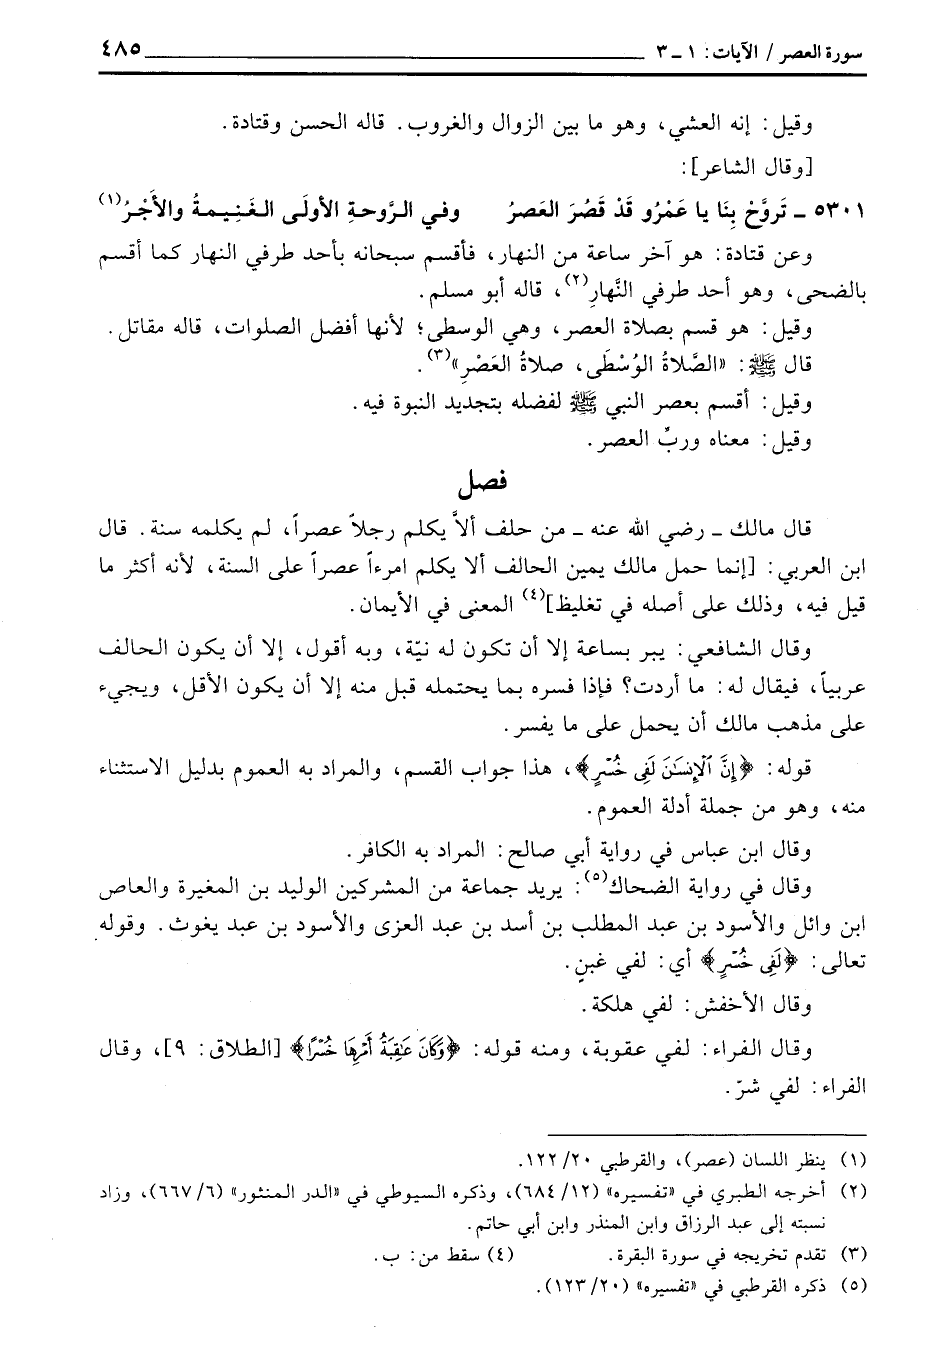 سورة العصر / الآيات: ١ ـ ٣ ٤٨٥
وقيل: إنه العشي، وهو ما بين الزوال والغروب. قاله الحسن وقتادة.
[وقال الشاعر]:
٥٣٠١ ـ تَروَّحْ بِنَا يا عَمْرُو قَدْ قَصُرَ العَصرُ وفي الرَّوحةِ الأولَى الغَنِيمةُ والأَجْرُ(١)
وعن قتادة: هو آخر ساعة من النهار، فأقسم سبحانه بأحد طرفي النهار كما أقسم
بالضحى، وهو أحد طرفي النَّهارِ(٢)، قاله أبو مسلم.
وقيل: هو قسم بصلاة العصر، وهي الوسطى؛ لأنها أفضل الصلوات، قاله مقاتل.
قال ﷺ: «الصَّلاةُ الوُسْطَى، صلاةُ العَصْرِ»(٣).
وقيل: أقسم بعصر النبي ﷺ لفضله بتجديد النبوة فيه.
وقيل: معناه وربِّ العصر.
فصل
قال مالك ـ رضي الله عنه ـ من حلف ألاَّ يكلم رجلاً عصراً، لم يكلمه سنة. قال
ابن العربي: [إنما حمل مالك يمين الحالف ألا يكلم امرءاً عصراً على السنة، لأنه أكثر ما
قيل فيه، وذلك على أصله في تغليظ](٤) المعنى في الأيمان.
وقال الشافعي: يبر بساعة إلا أن تكون له نيّة، وبه أقول، إلا أن يكون الحالف
عربياً، فيقال له: ما أردت؟ فإذا فسره بما يحتمله قبل منه إلا أن يكون الأقل، ويجيء
على مذهب مالك أن يحمل على ما يفسر.
قوله: ﴿إِنَّ ٱلْإِنسَٰنَ لَفِى خُسْرٍ﴾، هذا جواب القسم، والمراد به العموم بدليل الاستثناء
منه، وهو من جملة أدلة العموم.
وقال ابن عباس في رواية أبي صالح: المراد به الكافر.
وقال في رواية الضحاك(٥): يريد جماعة من المشركين الوليد بن المغيرة والعاص
ابن وائل والأسود بن عبد المطلب بن أسد بن عبد العزى والأسود بن عبد يغوث. وقوله
تعالى: ﴿لَفِى خُسْرٍ﴾ أي: لفي غبنٍ.
وقال الأخفش: لفي هلكة.
وقال الفراء: لفي عقوبة، ومنه قوله: ﴿وَكَانَ عَٰقِبَةُ أَمْرِهَا خُسْرًا﴾ [الطلاق: ٩]، وقال
الفراء: لفي شرّ.
(١) ينظر اللسان (عصر)، والقرطبي ٢٠/ ١٢٢.
(٢) أخرجه الطبري في «تفسيره» (١٢/ ٦٨٤)، وذكره السيوطي في «الدر المنثور» (٦/ ٦٦٧)، وزاد
نسبته إلى عبد الرزاق وابن المنذر وابن أبي حاتم.
(٣) تقدم تخريجه في سورة البقرة. (٤) سقط من: ب.
(٥) ذكره القرطبي في «تفسيره» (٢٠/ ١٢٣).